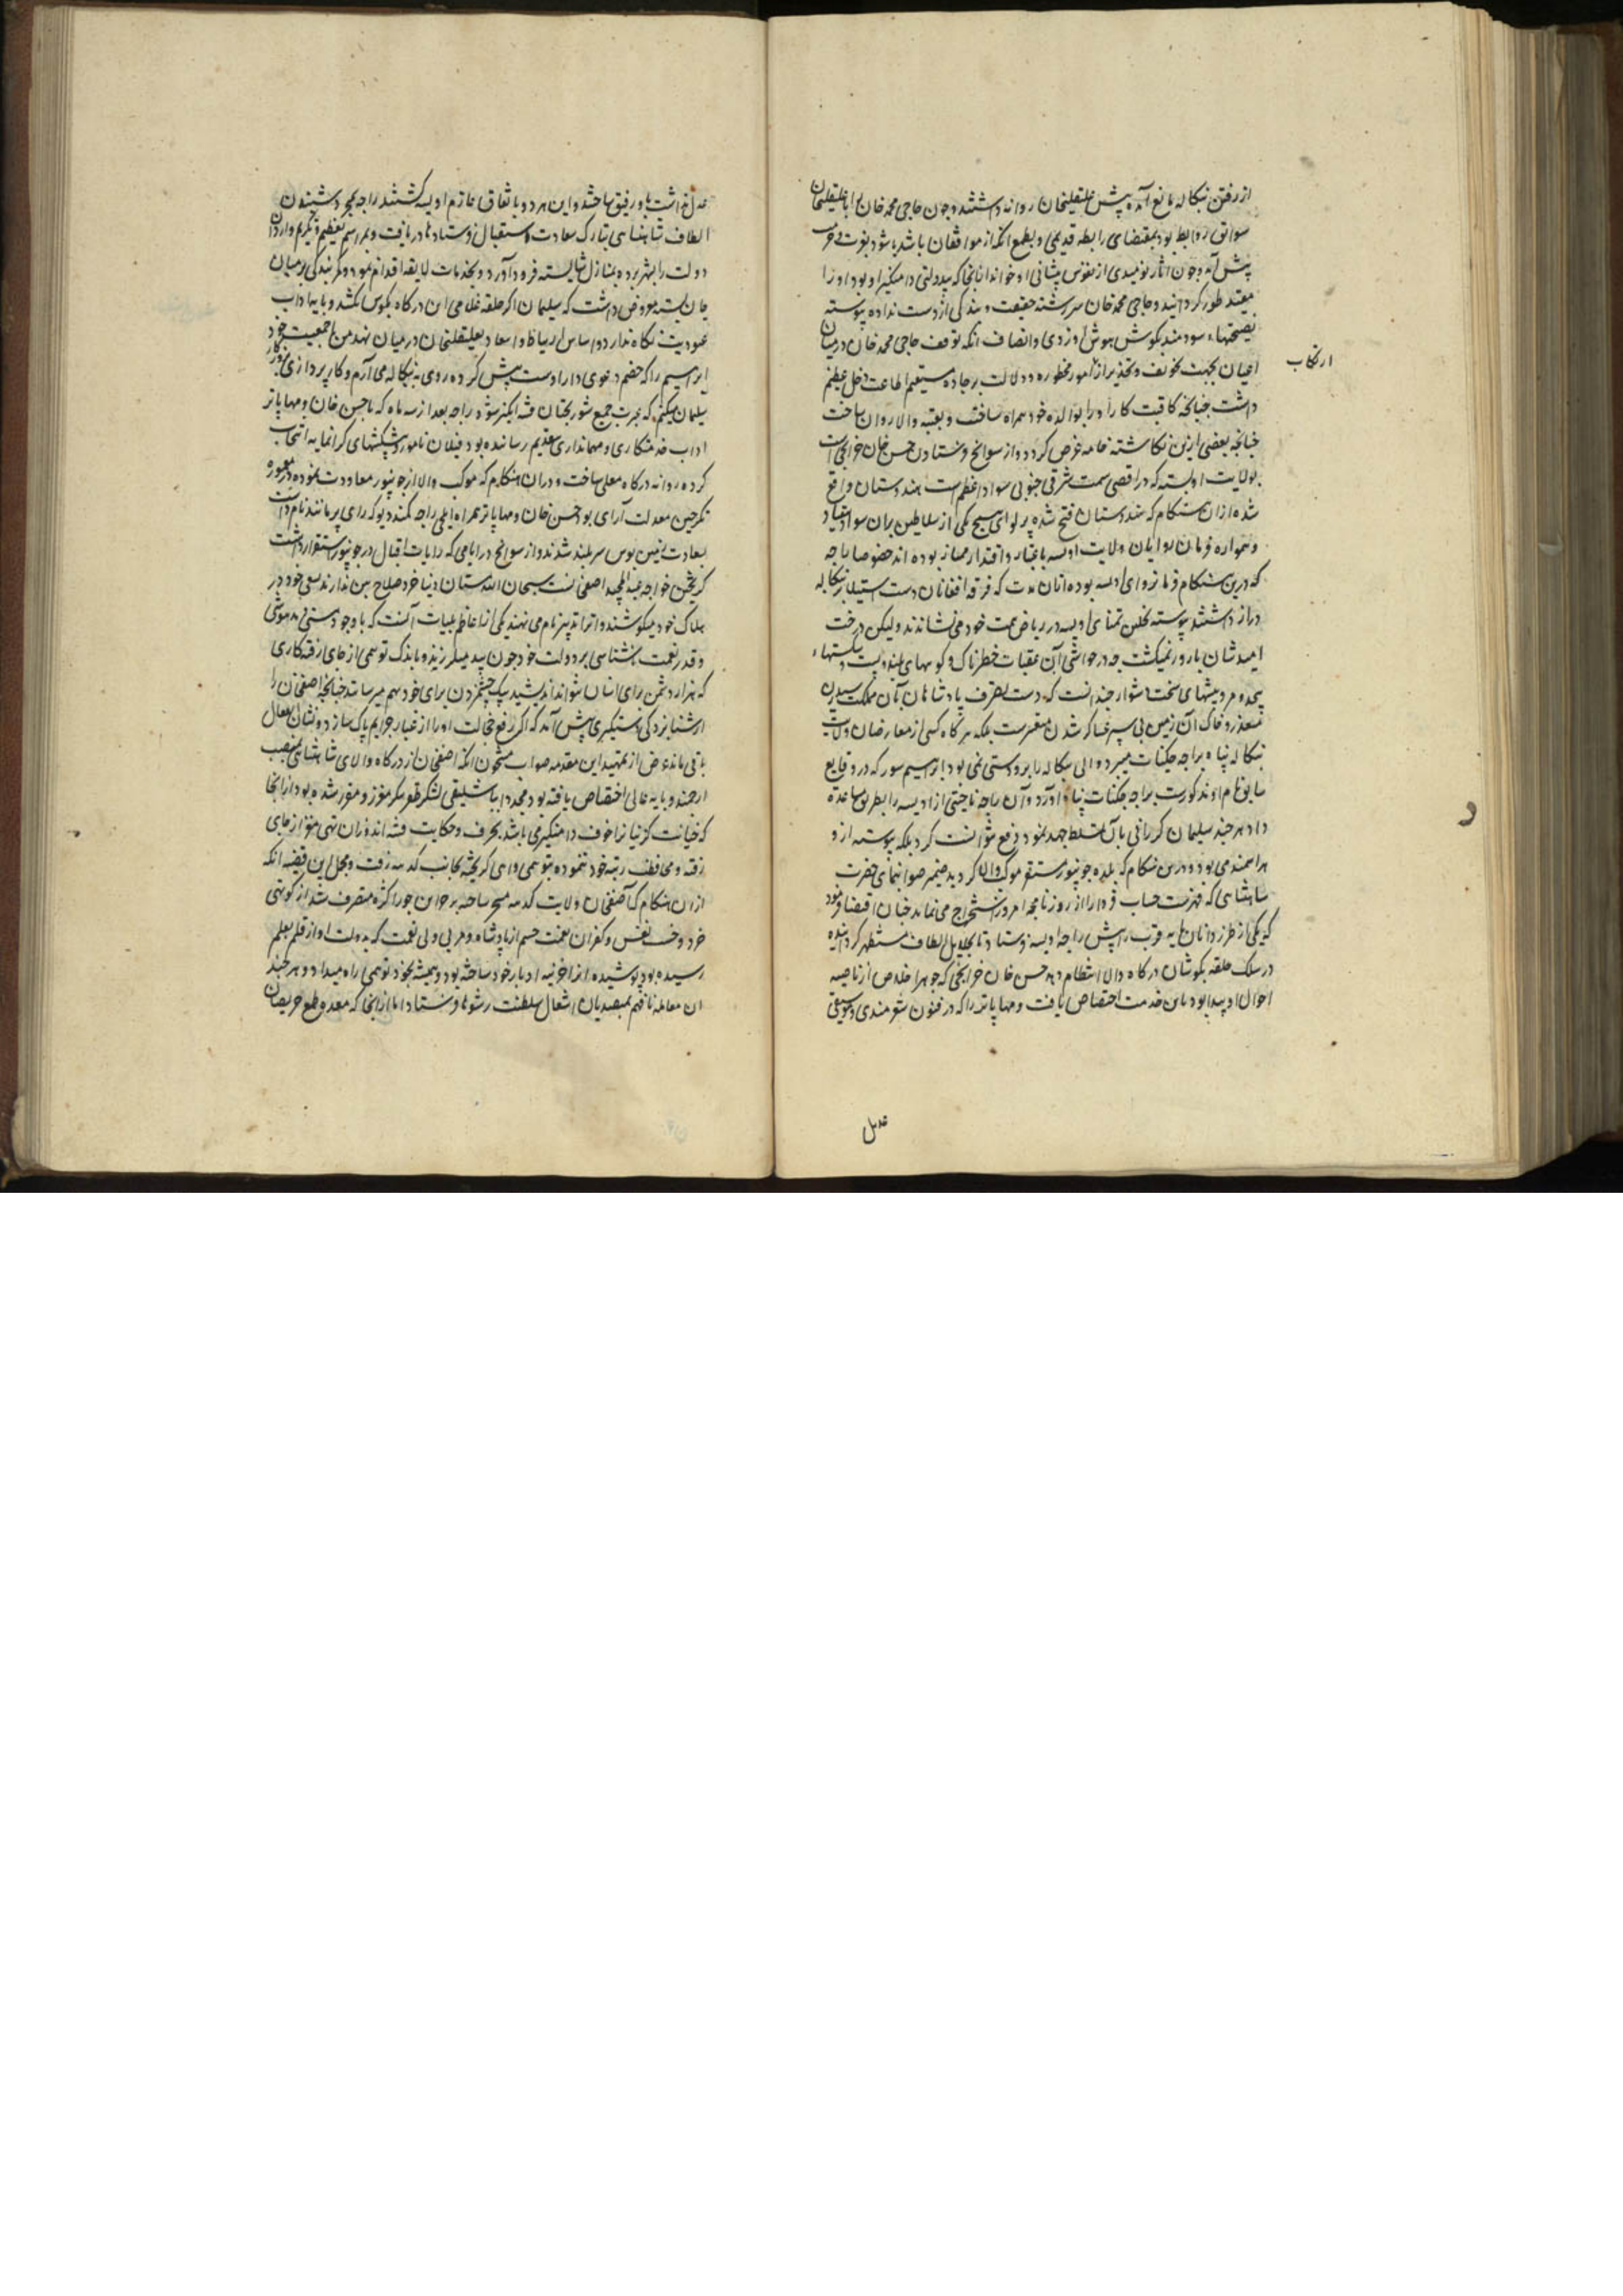 از رفتن بنگاله مانع آمده پیش علیقلیخان روانه داشتند و چون حاجی محمد خان را با علیقلیخان
سوابق روابط بود بمقتضای رابطه قدیمی و بطمع آنکه از موافقان باشد
پیش آمد و چون آثار نومیدی از نقوش پیشانی او خواند از آنجا که بیدولتی دامنگیر او بود او را
مقید طور گردانید و حاجی محمد خان سررشته حقیقت و بندگی از دست نداده پیوسته
نصیحتهاء سودمند بگوش هوش او زدی و انصاف آنکه توقف حاجی محمد خان در میان
اعیان بجهت تخویف و تحذیر از امور محظوره و دلالت بر جاده مستقیم اطاعت دخل عظیم
ارتکاب
داشت چنانچه عاقبت کار او را بوالده خود همراه ساخت و بعتبه والا روان ساخت
چنانچه بعضی ازین نگاشته خامه عرض گردد و از سوانح فرستادن حسن خان خزانچی است
بولایت اودیسه که در اقصی سمت شرقی جنوبی سواد اعظم هندستان واقع
شده از آن هنگام که هندستان فتح شده پرلوای هیچ یکی از سلاطین بران سواد
و همواره فرمان روایان ولایت اودیسه باعتبار و اقتدار ممتاز بوده اند خصوصا راجه
که درین هنگام فرمانروای اودیسه بوده از آن مدت که فرقه افغانان دست استیلا بر بنگاله
دراز داشتند پیوسته نخل تمنای اودیسه در ریاض همت خود می نشاندند ولیکن درخت
امید شان بارور نمیگشت چه در حواشی آن عقبات خطرناک و کوههای بلند و پست
پیچ و مردبیشهای سخت دشوار چندانست که دست تصرف پادشاهان بآن مملکت رسیدن
متعذر و خاک آن زمین پی سپر عساکر شدن متعسر است بلکه هرگاه کسی از معارضان ولایت
بنگاله پناه براجه جگنات میبرد والی بنگاله را برو دستی نمی بود ابراهیم سور که در وقایع
سابق نام او مذکورست براجه جگنات پناه آورد و آن راجه ناحیتی از اودیسه را بطریق مساعده
داد هر چند سلیمان کرانی با آن تسلط جهد نمود دفع نتوانست کرد بلکه پیوسته ازو
هراسمند می بود و درین هنگام که بلده جونپور مستقر موکب والا گردید ضمیر صوابنمای حضرت
شاهنشاهی که فهرست حساب فردا را از روزنامچه امروز استخراج می نماید چنان اقتضا فرمود
که یکی از طرز دانان پایه قرب را پیش راجه اودیسه فرستاد تا بجلایل الطاف مستظهر گردانیده
در سلک حلقه بگوشان درگاه والا انتظام دهد حسن خان خزانچی که جوهر اخلاص از ناصیه
احوال او پیدا بود باین خدمت اختصاص یافت و مهاپاتر را که در فنون شعر هندی و موسیقی
عدیل
عدیل نداشت یاور و رفیق ساختند و این هر دو باتفاق عازم اودیسه گشتند راجه بمجرد شنیدن
الطاف شاهنشاهی تبارک سعادت استقبال فرستاده ها دریافت و بمراسم تعظیم و تکریم واردان
دولت را بشهر برده بمنازل شایسته فرود آورد و بخدمات لایقه اقدام نمود و کمر بندگی بر میان
جان بسته معروض داشت که سلیمان اگر حلقه غلامی این درگاه بگوش کشد و پایه اداب
عبودیت نگاه ندارد و اساس ارتباط و اسعاد بعلیقلیخان در میان نهد من با جمعیت خود
ابراهیم را که خصم دعوی دار اوست پیش کرده روی به بنگاله می آرم و کار پردازی
سلیمان میکنم که عبرت جمیع شوربختان فتنه انگیز شود راجه بعد از سه ماه که با حسن خان و مهاپاتر
اداب خدمتکاری و مهمانداری بتقدیم رسانده بود فیلان نامور و پیشکشهای گرانمایه انتخاب
کرده روانه درگاه معلی ساخت و دران هنگام که موکب والا از جونپور معاودت نموده در معموره
نگرچین معدلت آرای بود حسن خان و مهاپاتر همراه ایلچی راجه مکند دیو که رای پرمانند نام داشت
بسعادت زمین بوس سربلند شدند و از سوانح در ایامی که رایات اقبال در جونپور استقرار داشت
گریختن خواجه عبدالمجید آصفخانست سبحان الله مستان دنیا خرد صلاح بین ندارند بسعی خود در
هلاک خود میکوشند و آنرا تدبیر نام می نهند یکی از اعاظم بلیات آنست که با وجود مستی و مدهوشی
و قدر نعمت ناشناسی بر دولت خود چون بید میلرزند و باندک توهمی از جای رفته کاری
که هزار دشمن برای انسان نتواند اندیشید بیک چشم زدن برای خود بهم میرسانند چنانچه آصفخان را
از شتابزدگی دستگیری پیش آمد که اگر رفع خجالت او را از غبار جرایم پاک سازد و نشان انفعال
باقی ماند غرض از تمهید این مقدمه صواب مشحون آنکه آصفخان از درگاه والای شاهنشاهی بمنصب
ارجمند و پایه عالی اختصاص یافته بود مجددا بباشلیقی لشکر ظفر پیکر مفوض و مقرر شده بود از آنجا
که خیانت گزینان را خوف دامنگیر می باشد بحرف و حکایت فتنه اندوزان تهی مغز از جای
رفته و محافظت رتبه خود ننموده بتوهمی واهی گریخته بجانب گدهه رفت و مجمل این قضیه آنکه
از آن هنگام که آصفخان ولایت گدهه مسخر ساخته بر خزاین چوراگره متصرف شد از کوتهی
خرد و خست نفس و کفران نعمت چشم از پادشاه و مربی و ولی نعمت که بدولت او از قلم بعلم
رسیده بود پوشیده از آن خزینه ادبار خود ساخته بود و همیشه بخود توهمی راه میداد و هر چند
آن معامله نافهم بمتصدیان اشغال سلطنت رشوتها فرستاد اما از آنجا که معده طمع حریصان